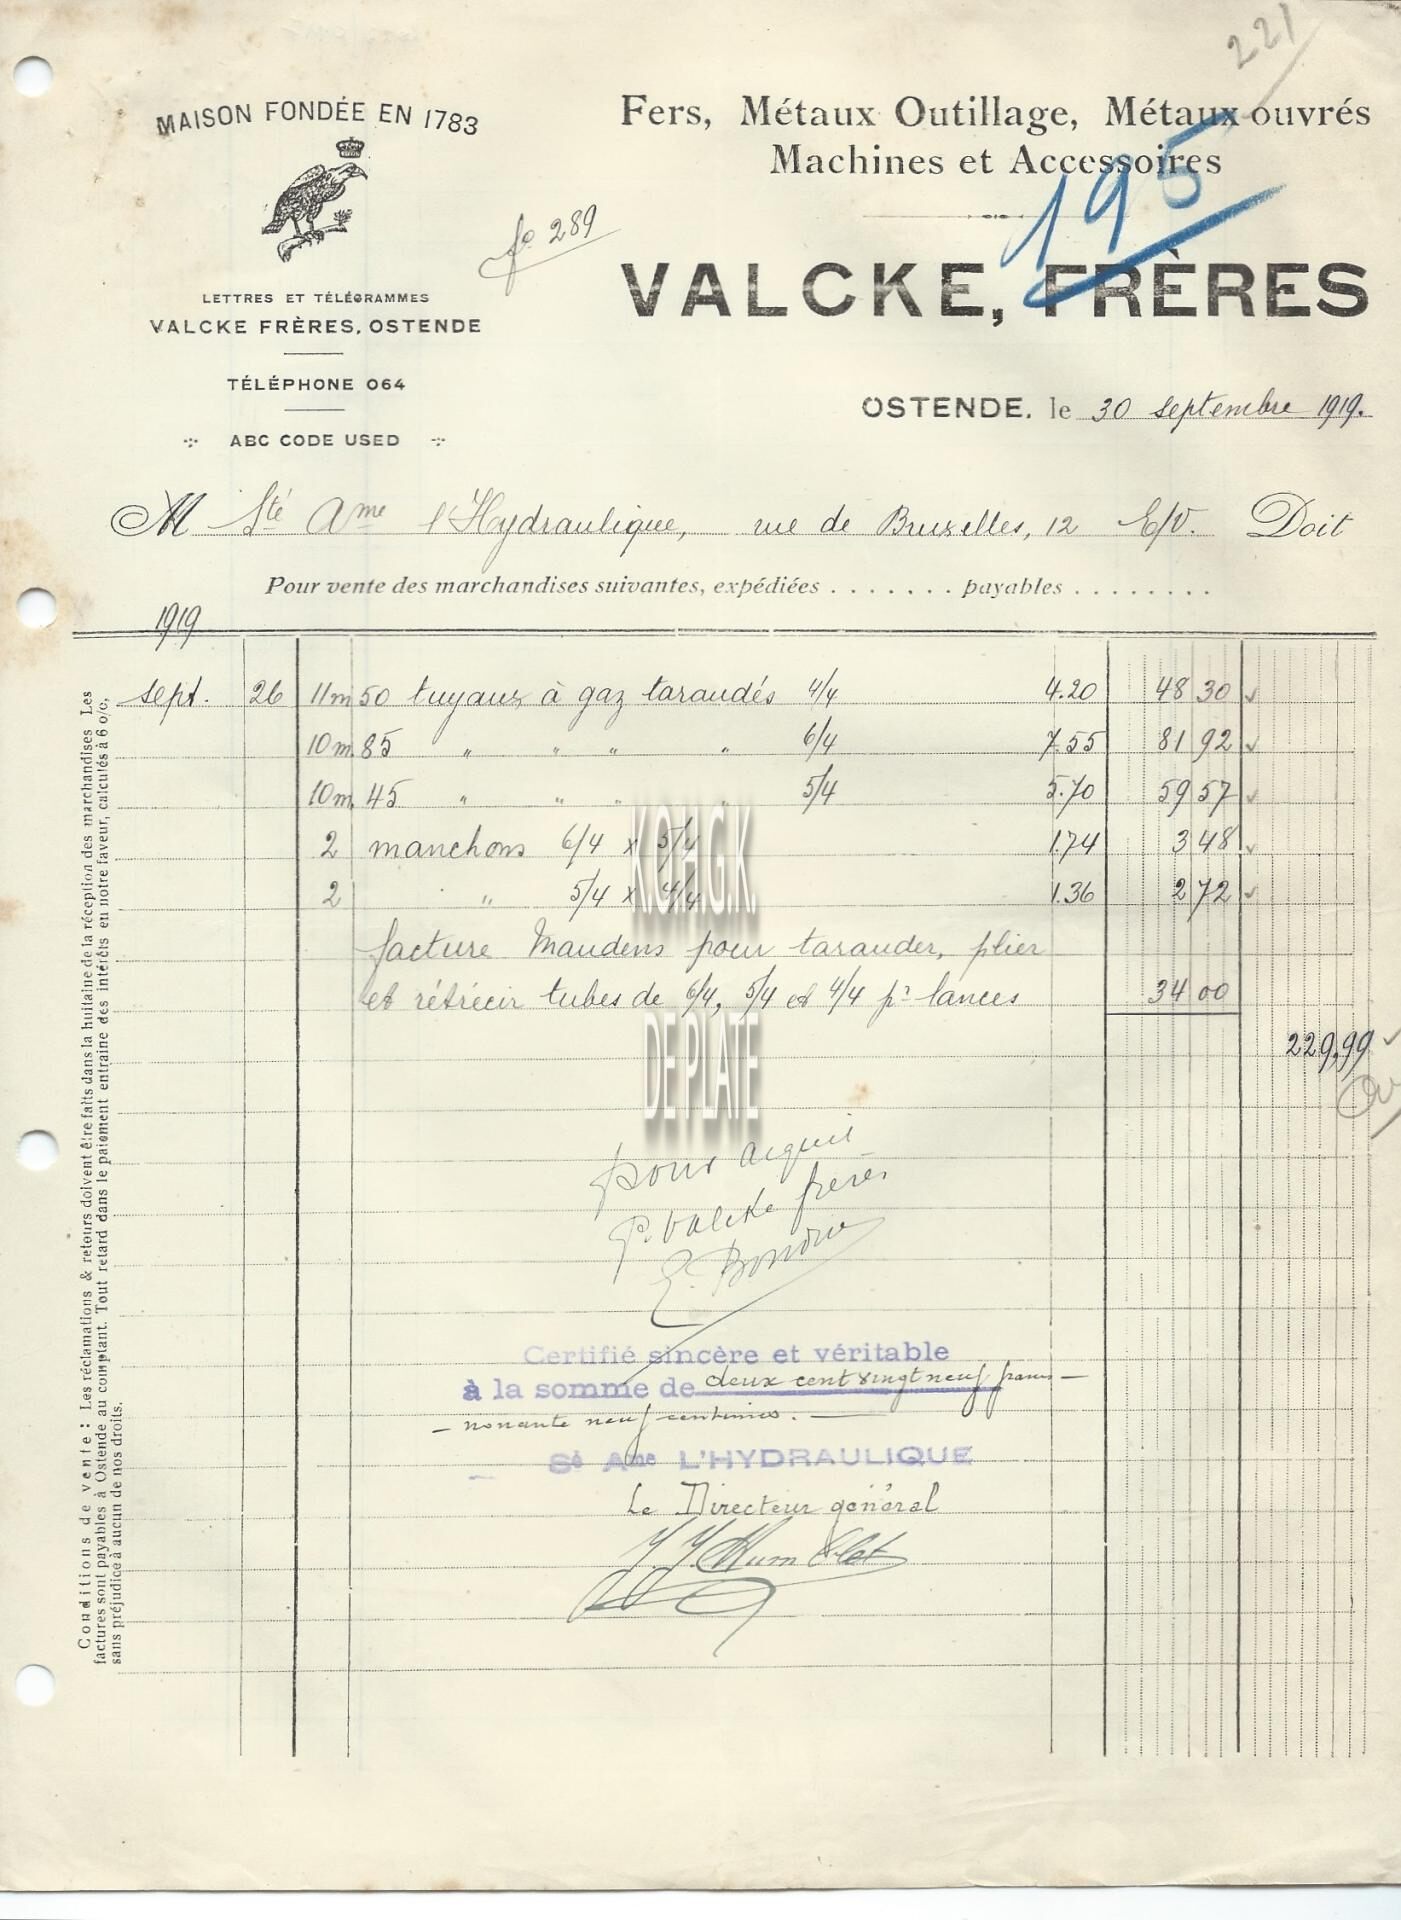 221
MAISON FONDÉE EN 1783
Fers, Métaux Outillage, Métaux ouvrés
Machines et Accessoires
195
fo 289
VALCKE, FRÈRES
LETTRES ET TÉLÉGRAMMES
VALCKE FRÈRES, OSTENDE
TÉLÉPHONE 064
ABC CODE USED
OSTENDE, le 30 septembre 1919.
M Sté Ame l'Hydraulique, rue de Bruxelles, 12 E/V. Doit
Pour vente des marchandises suivantes, expédiées ....... payables ........
1919
sept. 26 11m 50 tuyaux à gaz taraudés 4/4 4.20 48 30
10m 85 " " " " 6/4 7.55 81 92
10m 45 " " " " 5/4 5.70 59 57
2 manchons 6/4 x 5/4 1.74 3 48
2 " 5/4 x 4/4 1.36 2 72
facture Maudens pour tarauder, plier
et rétrécir tubes de 6/4, 5/4 et 4/4 pr lances 34 00
229,99
K.O.H.G.K.
DE PLATE
pour acquit
P. Valcke frères
Certifié sincère et véritable
à la somme de deux cent vingt neuf francs
nonante neuf centimes.
Sé Ame L'HYDRAULIQUE
Le Directeur général
Conditions de vente : Les réclamations & retours doivent être faits dans la huitaine de la réception des marchandises Les
factures sont payables à Ostende au comptant. Tout retard dans le paiement entraine des intérêts en notre faveur, calculés à 6 o/o,
sans préjudice à aucun de nos droits.